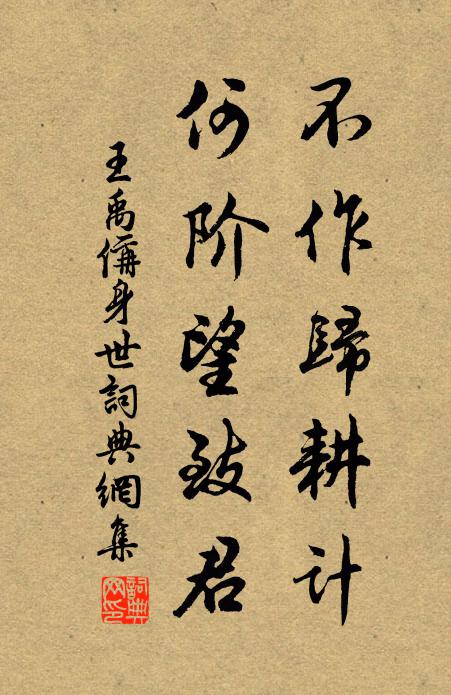 不作歸耕计
何阶望致君
王禹偁身世詞典網集
詞典网印